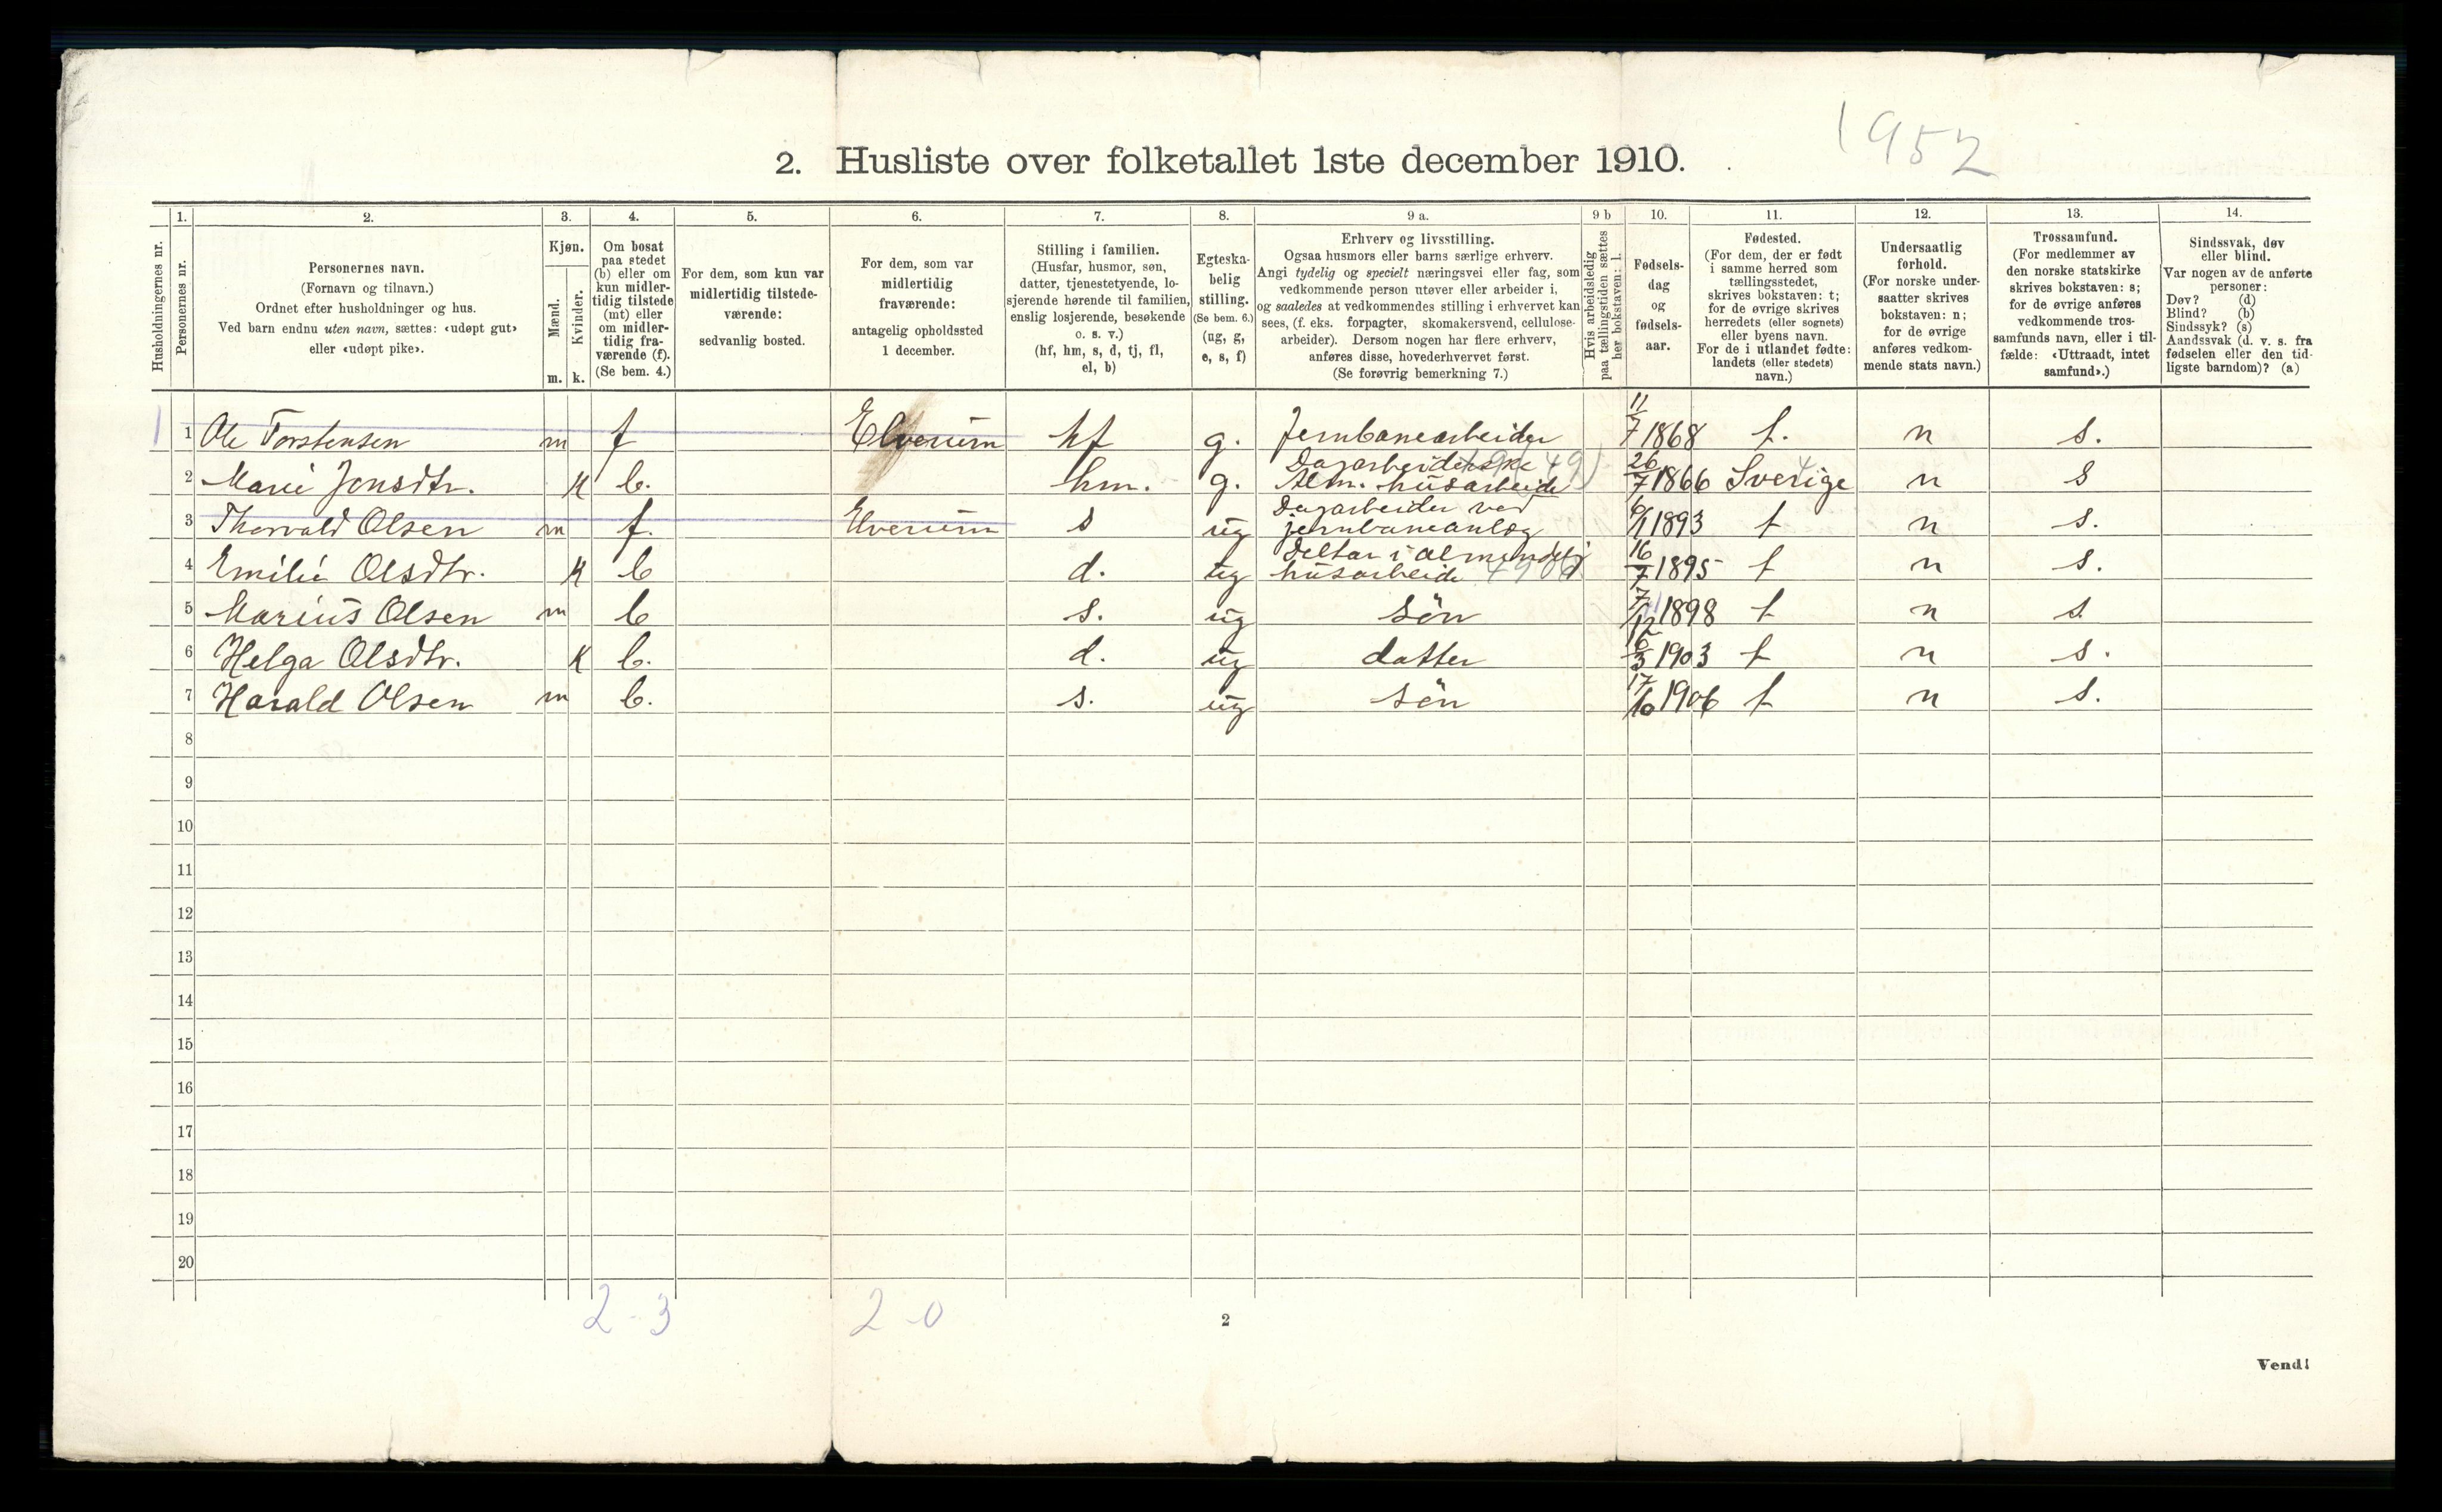 1952
2. Husliste over folketallet 1ste december 1910.
Husholdningernes nr.
1.
Personernes nr.
2.
Personernes navn.
(Fornavn og tilnavn.)
Ordnet efter husholdninger og hus.
Ved barn endnu uten navn, sættes: «udøpt gut»
eller «udøpt pike».
3.
Kjøn.
Mænd.
Kvinder.
m. k.
4.
Om bosat
paa stedet
(b) eller om
kun midler-
tidig tilstede
(mt) eller
om midler-
tidig fra-
værende (f).
(Se bem. 4.)
5.
For dem, som kun var
midlertidig tilstede-
værende:
sedvanlig bosted.
6.
For dem, som var
midlertidig
fraværende:
antagelig opholdssted
1 december.
7.
Stilling i familien.
(Husfar, husmor, søn,
datter, tjenestetyende, lo-
sjerende hørende til familien,
enslig losjerende, besøkende
o. s. v.)
(hf, hm, s, d, tj, fl,
el, b)
8.
Egteska-
belig
stilling.
(Se bem. 6.)
(ug, g,
e, s, f)
9 a.
Erhverv og livsstilling.
Ogsaa husmors eller barns særlige erhverv.
Angi tydelig og specielt næringsvei eller fag, som
vedkommende person utøver eller arbeider i,
og saaledes at vedkommendes stilling i erhvervet kan
sees, (f. eks. forpagter, skomakersvend, cellulose-
arbeider). Dersom nogen har flere erhverv,
anføres disse, hovederhvervet først.
(Se forøvrig bemerkning 7.)
9 b
Hvis arbeidsledig
paa tællingstiden sættes
her bokstaven: l.
10.
Fødsels-
dag
og
fødsels-
aar.
11.
Fødested.
(For dem, der er født
i samme herred som
tællingsstedet,
skrives bokstaven: t;
for de øvrige skrives
herredets (eller sognets)
eller byens navn.
For de i utlandet fødte:
landets (eller stedets)
navn.)
12.
Undersaatlig
forhold.
(For norske under-
saatter skrives
bokstaven: n;
for de øvrige
anføres vedkom-
mende stats navn.)
13.
Trossamfund.
(For medlemmer av
den norske statskirke
skrives bokstaven: s;
for de øvrige anføres
vedkommende tros-
samfunds navn, eller i til-
fælde: «Uttraadt, intet
samfund».)
14.
Sindssvak, døv
eller blind.
Var nogen av de anførte
personer:
Døv? (d)
Blind? (b)
Sindssyk? (s)
Aandssvak (d. v. s. fra
fødselen eller den tid-
ligste barndom)? (a)
1 1 Ole Torstensen m f Elverum hf g. Jernbanearbeider 11/7 1868 t. n s.
2 Marie Jonsdtr. k b. hm. g. Dagarbeiderske Alm. husarbeide 26/7 1866 Sverige n s
3 Thorvald Olsen m f. Elverum s ug Dagarbeider ved jernbaneanlæg 6/1 1893 t n s.
4 Emilie Olsdtr. k b d. ug Deltar i almindelig husarbeide 16/7 1895 t n s.
5 Marius Olsen m b s. ug søn 7/12 1898 t n s
6 Helga Olsdtr. k b. d. ug datter 1903 t n s.
7 Harald Olsen m b. s. ug søn 17/10 1906 t n s.
8
9
10
11
12
13
14
15
16
17
18
19
20
2-3 2-0
2
Vend!